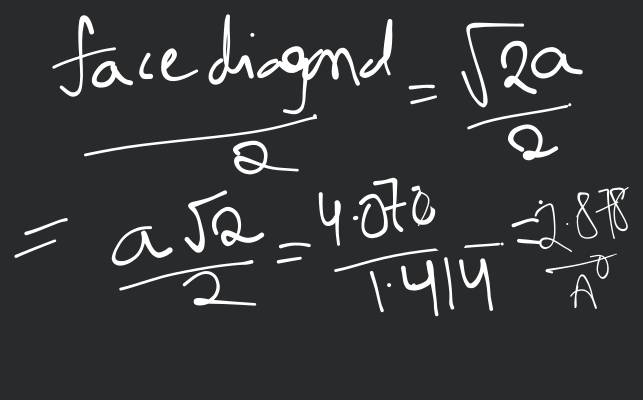 face diagonal / 2 = √2a / 2
= a√2 / 2 = 4.070 / 1.414 = 2.878 A°